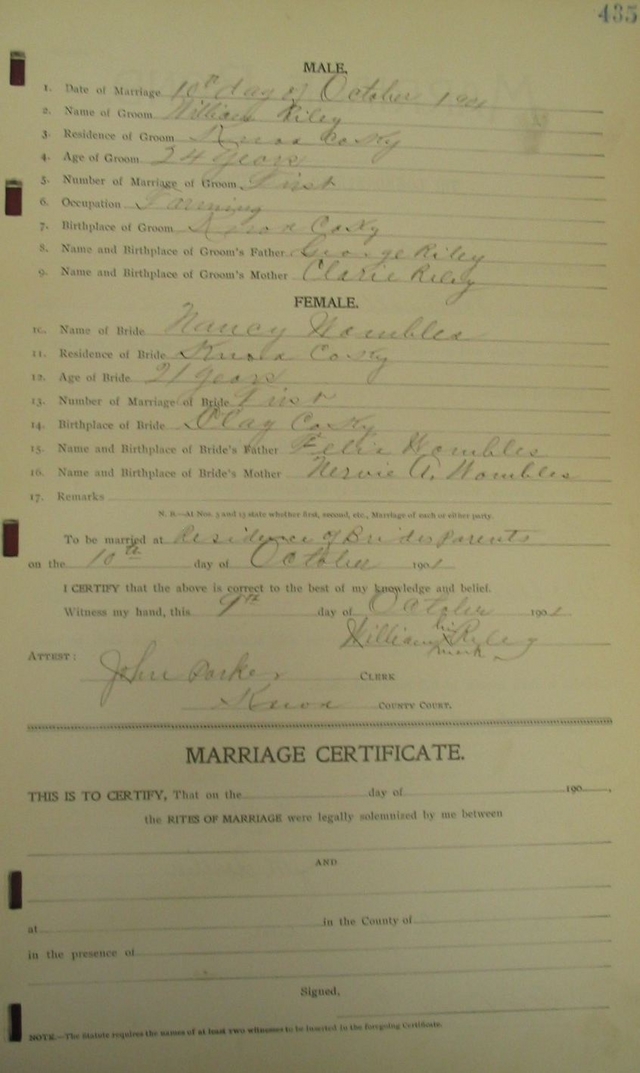 435
MALE.
1. Date of Marriage 10th day of October 1901
2. Name of Groom William Riley
3. Residence of Groom Knox Co Ky
4. Age of Groom 24 years
5. Number of Marriage of Groom First
6. Occupation Farming
7. Birthplace of Groom Knox Co Ky
8. Name and Birthplace of Groom's Father George Riley
9. Name and Birthplace of Groom's Mother Clarie Riley
FEMALE.
10. Name of Bride Nancy Hombles
11. Residence of Bride Knox Co Ky
12. Age of Bride 21 years
13. Number of Marriage of Bride First
14. Birthplace of Bride Clay Co Ky
15. Name and Birthplace of Bride's Father Felix Hombles
16. Name and Birthplace of Bride's Mother Nervie A. Hombles
17. Remarks
N. B.—At Nos. 5 and 13 state whether first, second, etc., Marriage of each or either party.
To be married at Residence of Brides Parents
on the 10th day of October 1901
I CERTIFY that the above is correct to the best of my knowledge and belief.
Witness my hand, this 9th day of October 1901
William his Riley
mark
ATTEST:
John Parker, CLERK
Knox COUNTY COURT.
MARRIAGE CERTIFICATE.
THIS IS TO CERTIFY, That on the day of 190
the RITES OF MARRIAGE were legally solemnized by me between
AND
at in the County of
in the presence of
Signed,
NOTE.—The Statute requires the names of at least two witnesses to be inserted in the foregoing Certificate.